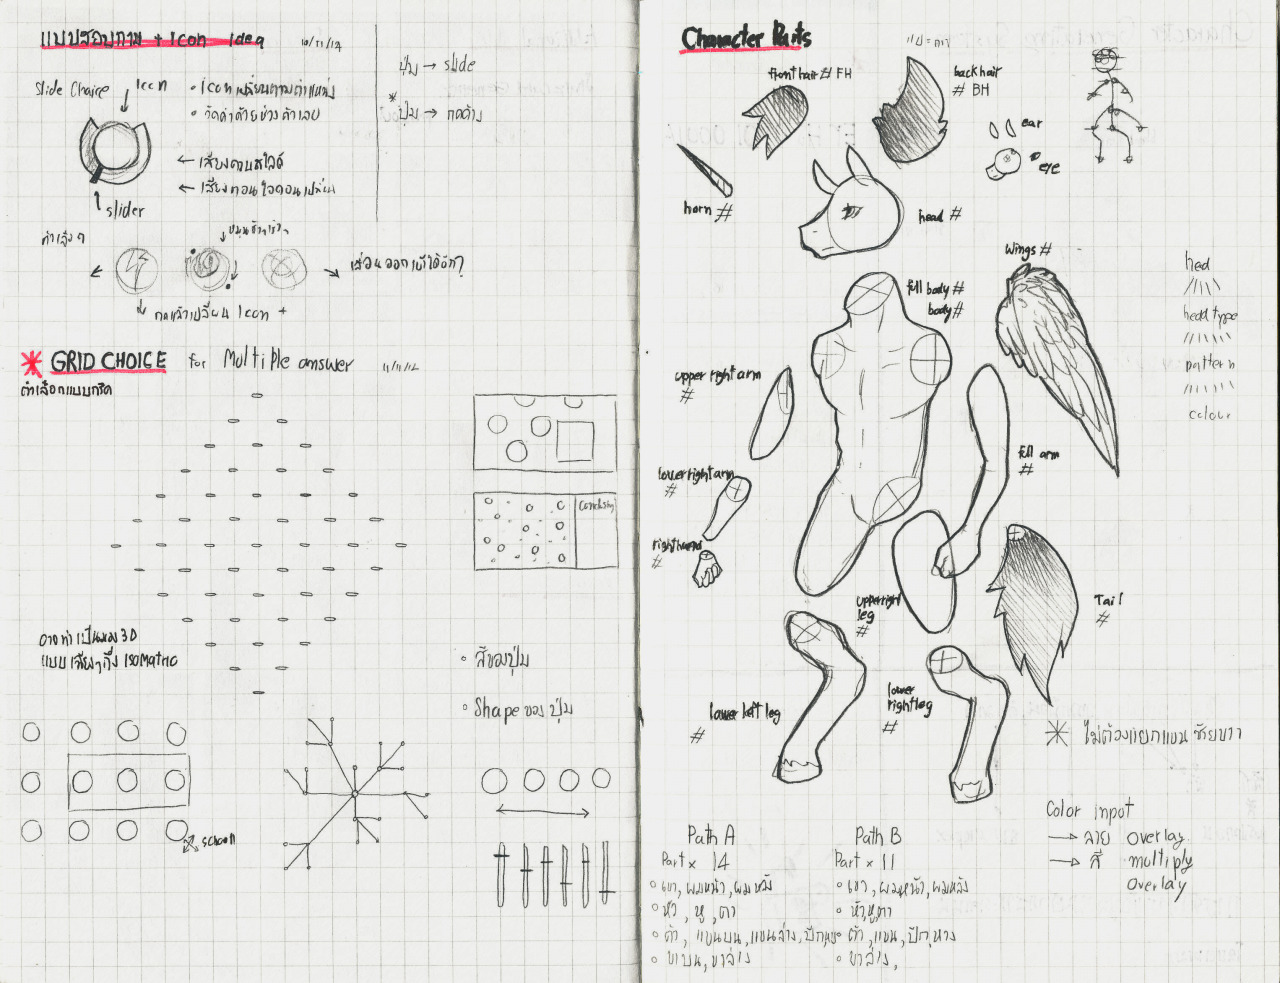 แบบสอบถาม + Icon Idea 10/11/12
Slide Choice
Icon
• Icon เปลี่ยนตามตำแหน่ง
• วัดค่าด้วยช่วงตัวเลข
← เสียงตามสไลด์
← เสียงตอนไอคอนเปลี่ยน
slider
ปุ่ม → slide
* ปุ่ม → กดค้าง
กดแล้วเปลี่ยน Icon +
เลื่อนออกแล้วได้อีก?
* GRID CHOICE for Multiple answer 11/11/12
ตัวเลือกแบบกริด
Conclusion
อาจทำเป็นมอง 3D
แบบเอียงๆกึ่ง ISOMatric
• สีของปุ่ม
• Shape ของปุ่ม
Character Parts
front hair # FH
back hair
# BH
ear
eye
horn #
head #
Wings #
full body #
body #
upper right arm
#
full arm
#
lower right arm
#
right hand
#
upper right
leg
#
Tail
#
lower left leg
#
lower
right leg
#
head type
pattern
colour
* ไม่ต้องแยกแขน ซ้ายขวา
Color Input
→ ลาย overlay
→ สี multiply
overlay
Path A
Part x 14
• เขา, ผมหน้า, ผมหลัง
• หัว, หู, ตา
• ตัว, แขนบน, แขนล่าง, ปีก,หาง
• ขาบน, ขาล่าง
Path B
Part x 11
• เขา, ผมหน้า, ผมหลัง
• หัว,หู,ตา
• ตัว, แขน, ปีก, หาง
• ขาล่าง,